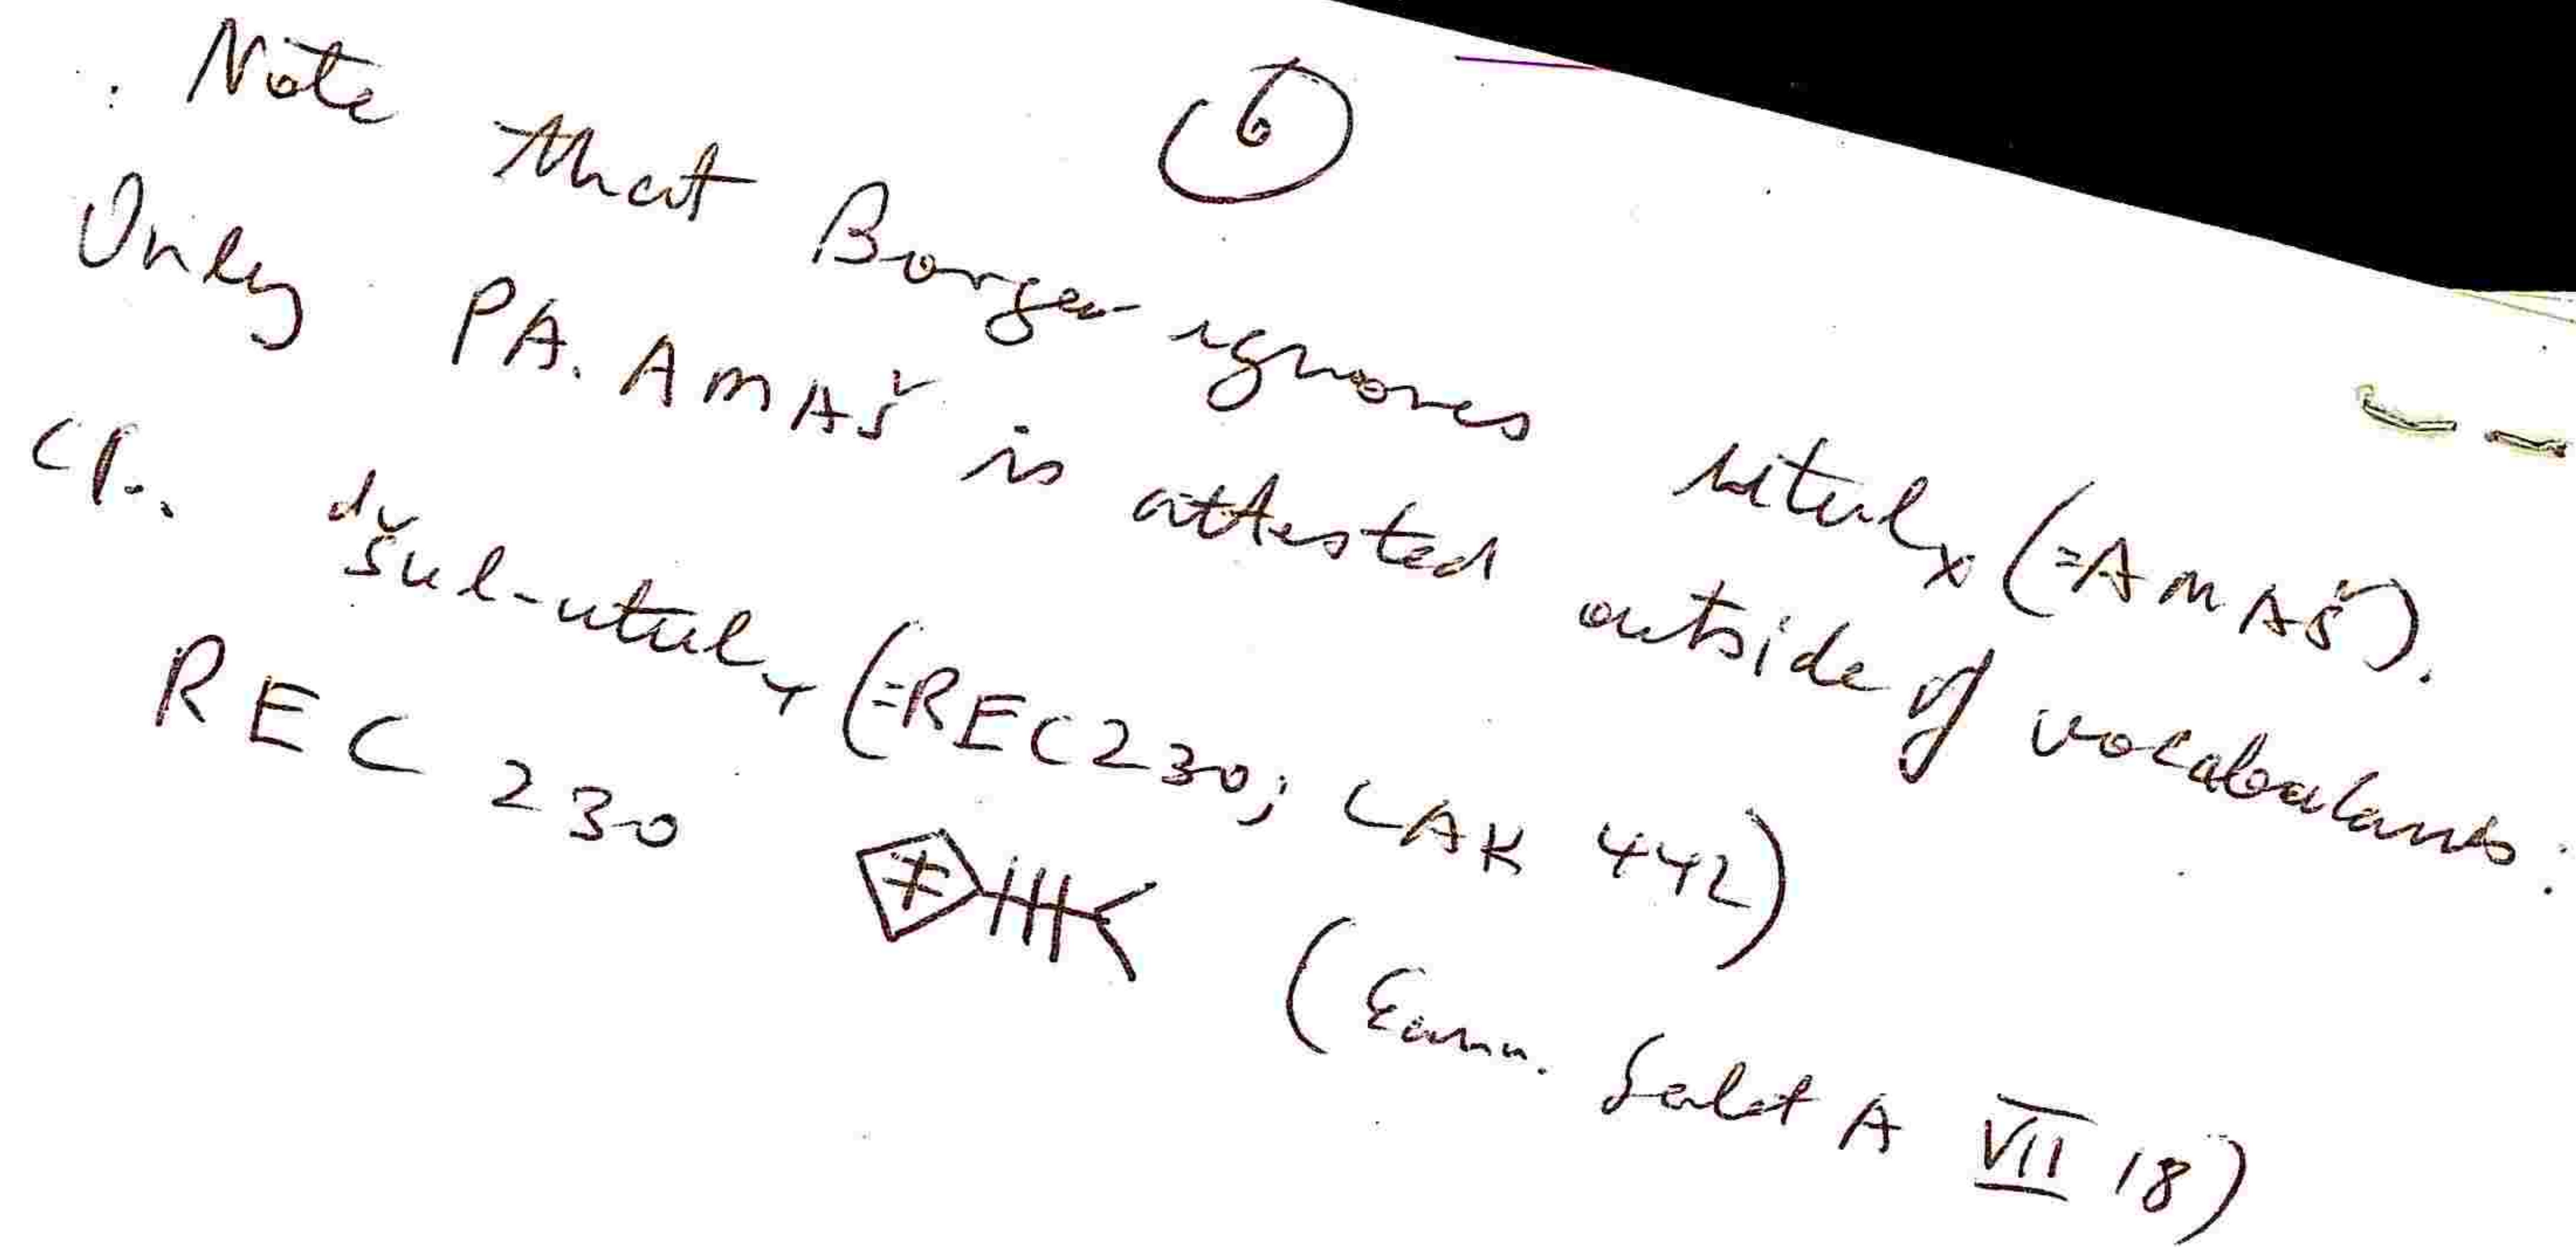 ⑥
Note that Borger ignores utulₓ (=AMAŠ).
Only PA.AMAŠ is attested outside of vocabularies:
Cf. ᵈšul-utulₓ (=REC230; LAK 442)
REC 230 (Eann. Galet A VII 18)